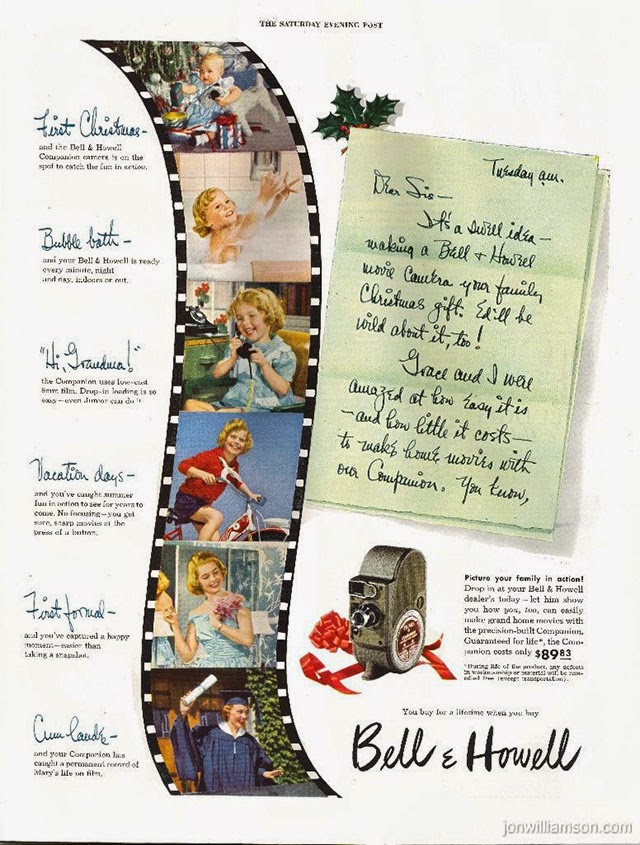 THE SATURDAY EVENING POST
First Christmas—
and the Bell & Howell
Companion camera is on the
spot to catch the fun in action.
Bubble bath —
and your Bell & Howell is ready
every minute, night
and day, indoors or out.
"Hi, Grandma!"
the Companion uses low-cost
8mm film. Drop-in loading is so
easy—even Junior can do it
Vacation days—
and you've caught summer
fun in action to see for years to
come. No focusing—you get
sure, sharp movies at the
press of a button.
First formal—
and you've captured a happy
moment—easier than
taking a snapshot.
Cum laude—
and your Companion has
caught a permanent record of
Mary's life on film.
Tuesday a.m.
Dear Sis—
It's a swell idea—
making a Bell & Howell
movie camera your family
Christmas gift. Ed'll be
wild about it, too!
Grace and I were
amazed at how easy it is
—and how little it costs—
to make home movies with
our Companion. You know,
Picture your family in action!
Drop in at your Bell & Howell
dealer's today—let him show
you how you, too, can easily
make grand home movies with
the precision-built Companion.
Guaranteed for life*, the Com-
panion costs only $89.83
*During life of the product, any defects
in workmanship or material will be rem-
edied free (except transportation).
You buy for a lifetime when you buy
Bell & Howell
jonwilliamson.com